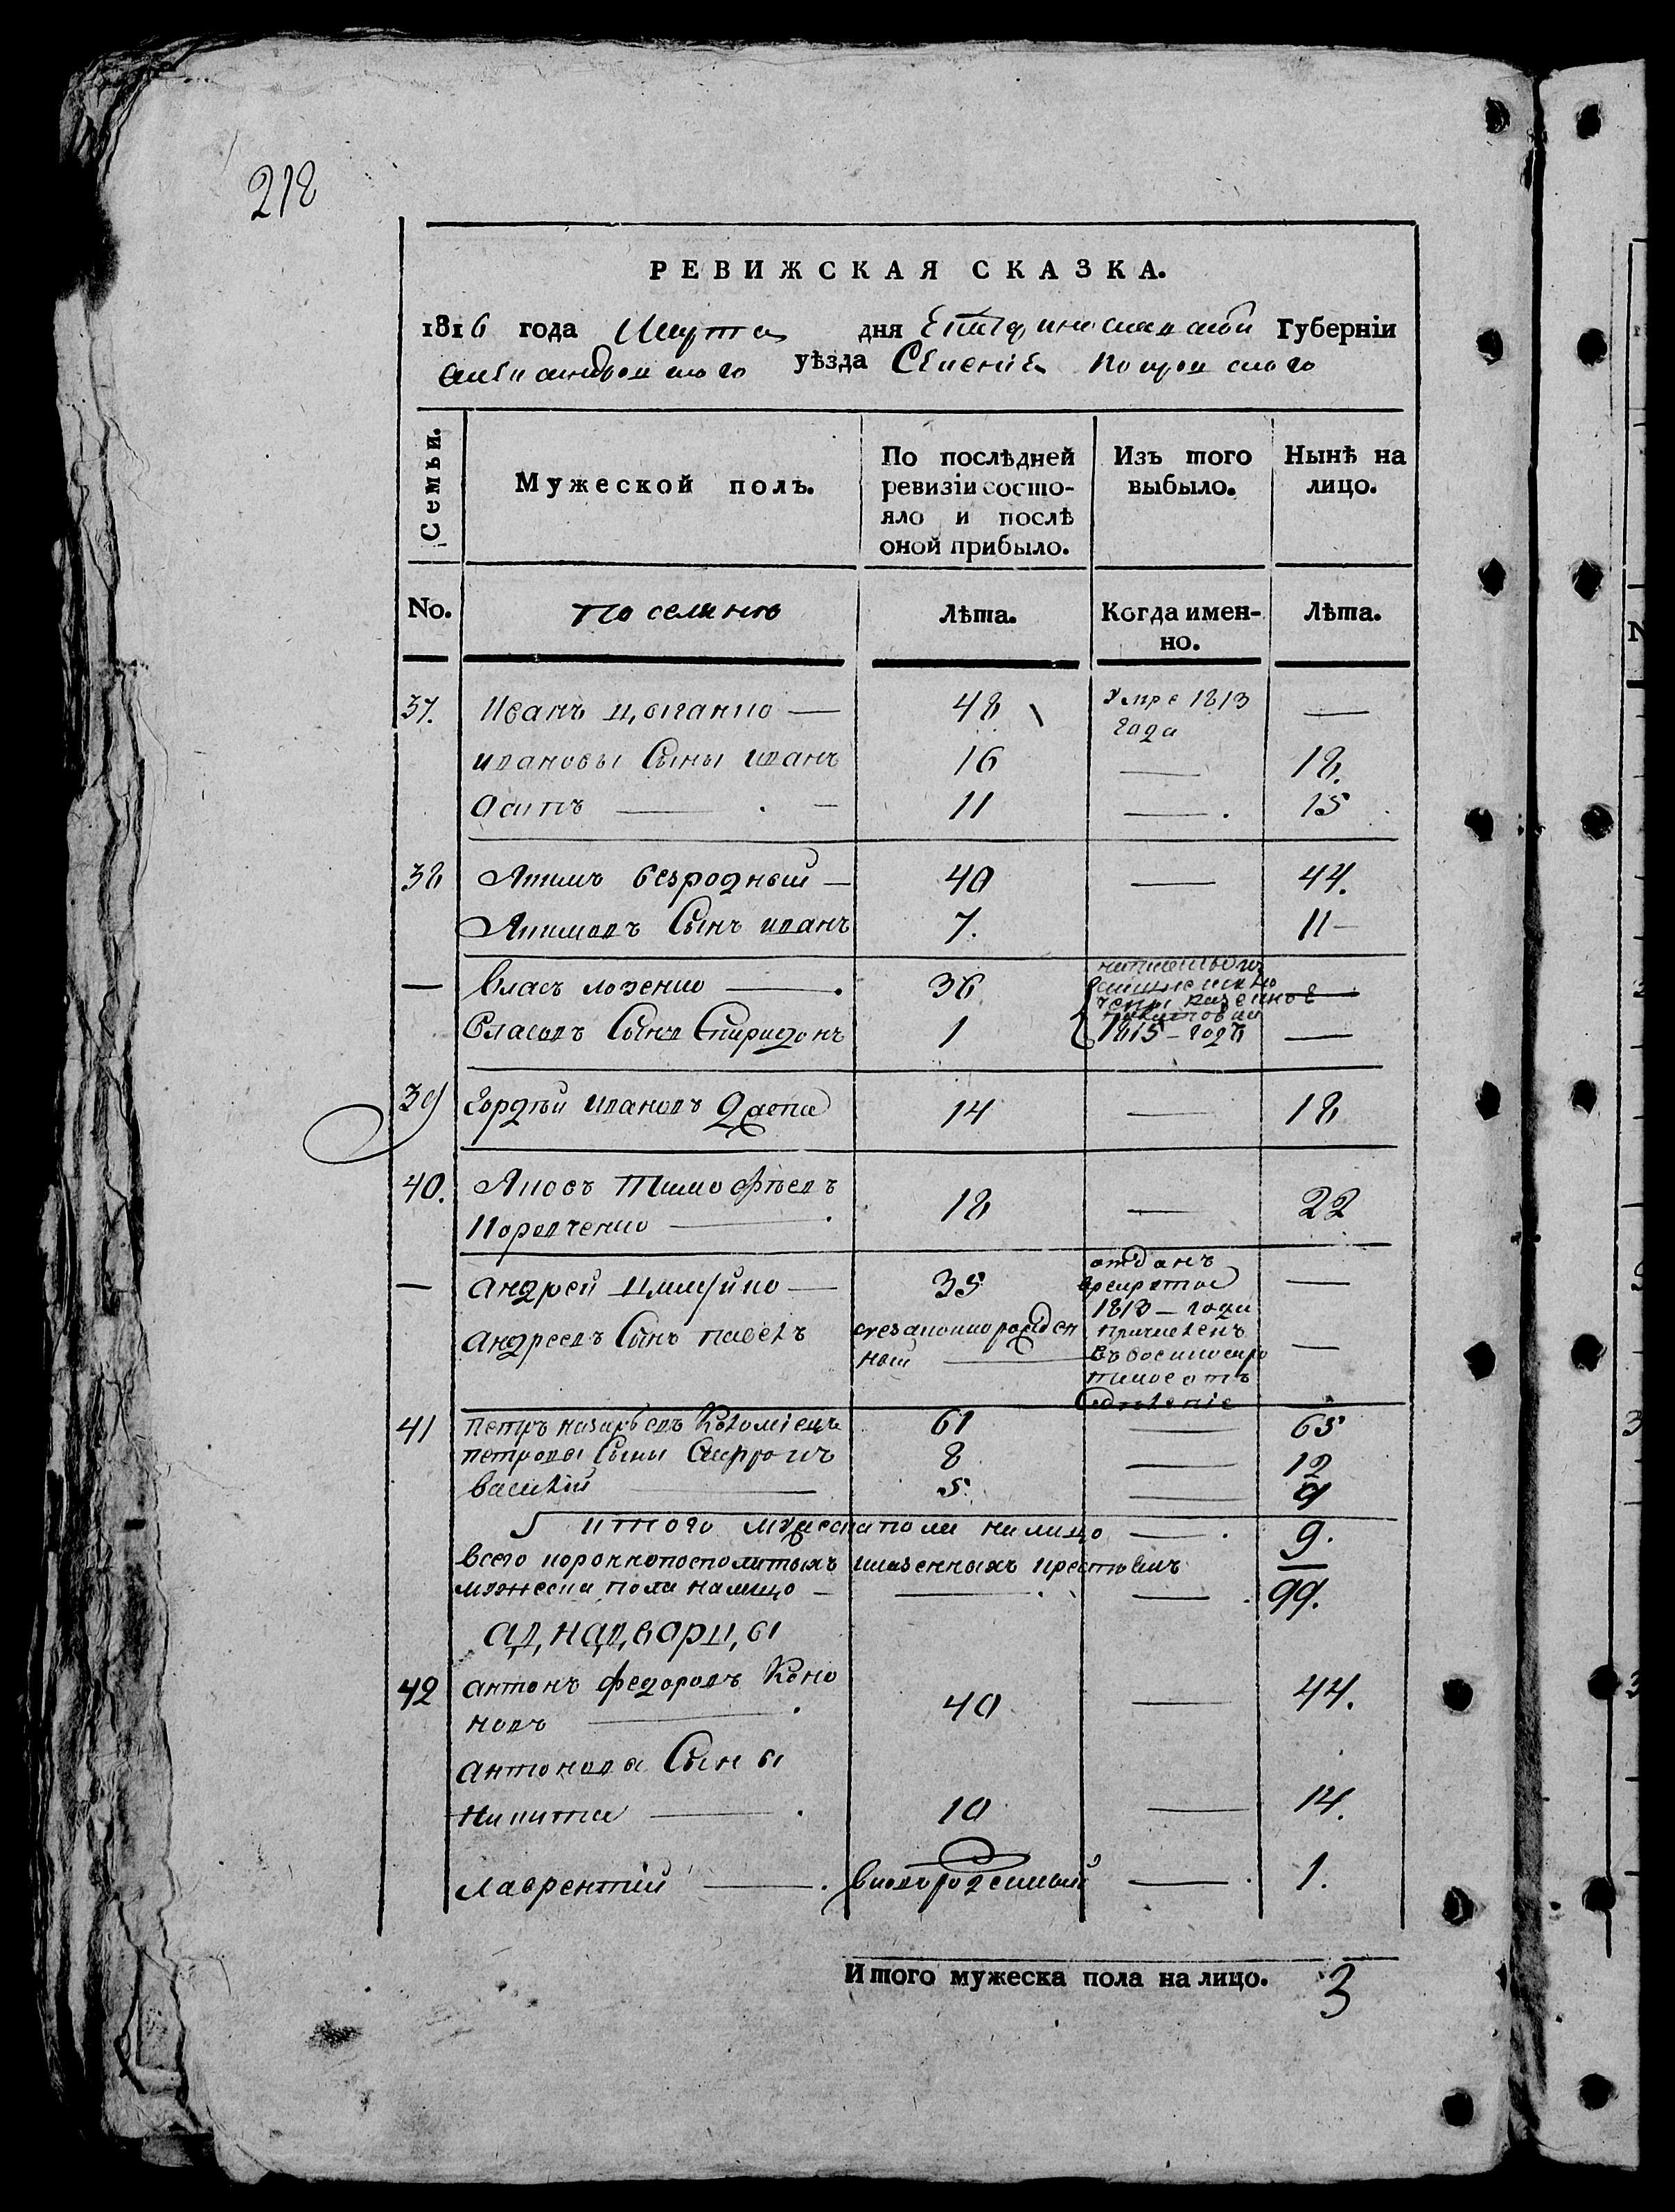 218
РЕВИЖСКАЯ СКАЗКА.
1816 года Марта дня Екатериносламской Губерніи
Александровского уѣзда Селенія Покровского
Семьи. Мужеской полъ. По послѣдней ревизіи состояло и послѣ оной прибыло. Изъ того выбыло. Нынѣ на лицо.
No. Лѣта. Когда именно. Лѣта.
37. Иванъ цыганко — 48 Умре 1813 года —
ивановы Сыны иванъ 16 — 18.
Осипъ — 11 — 15
38 Якимъ безродный — 40 — 44.
Якимовъ Сынъ иванъ 7. 11 —
— Власъ лозенко — 36 —
Власовъ Сынъ Спиридонъ 1 1815 — года —
39 Гордѣй ивановъ 14 — 18
40. Яковъ Тимофѣевъ 18 — 22
— андрей 35 отданъ 1813 — года —
андреевъ Сынъ павелъ причисленъ —
41 петръ назарьевъ Коломіецъ 61 — 65
петровы Сыны 8 — 12
василій — 5 — 9
итого мужеска пола налицо — 9.
всего короннопосполитыхъ казенныхъ крестьянъ
мужеска пола налицо — — — 99.
аднадворцы
42 антонъ федоровъ Коно
новъ — 40 — 44.
антоновы Сыны
Никита — 10 — 14.
лаврентій — вновьрожденный — 1.
Итого мужеска пола на лицо. 3